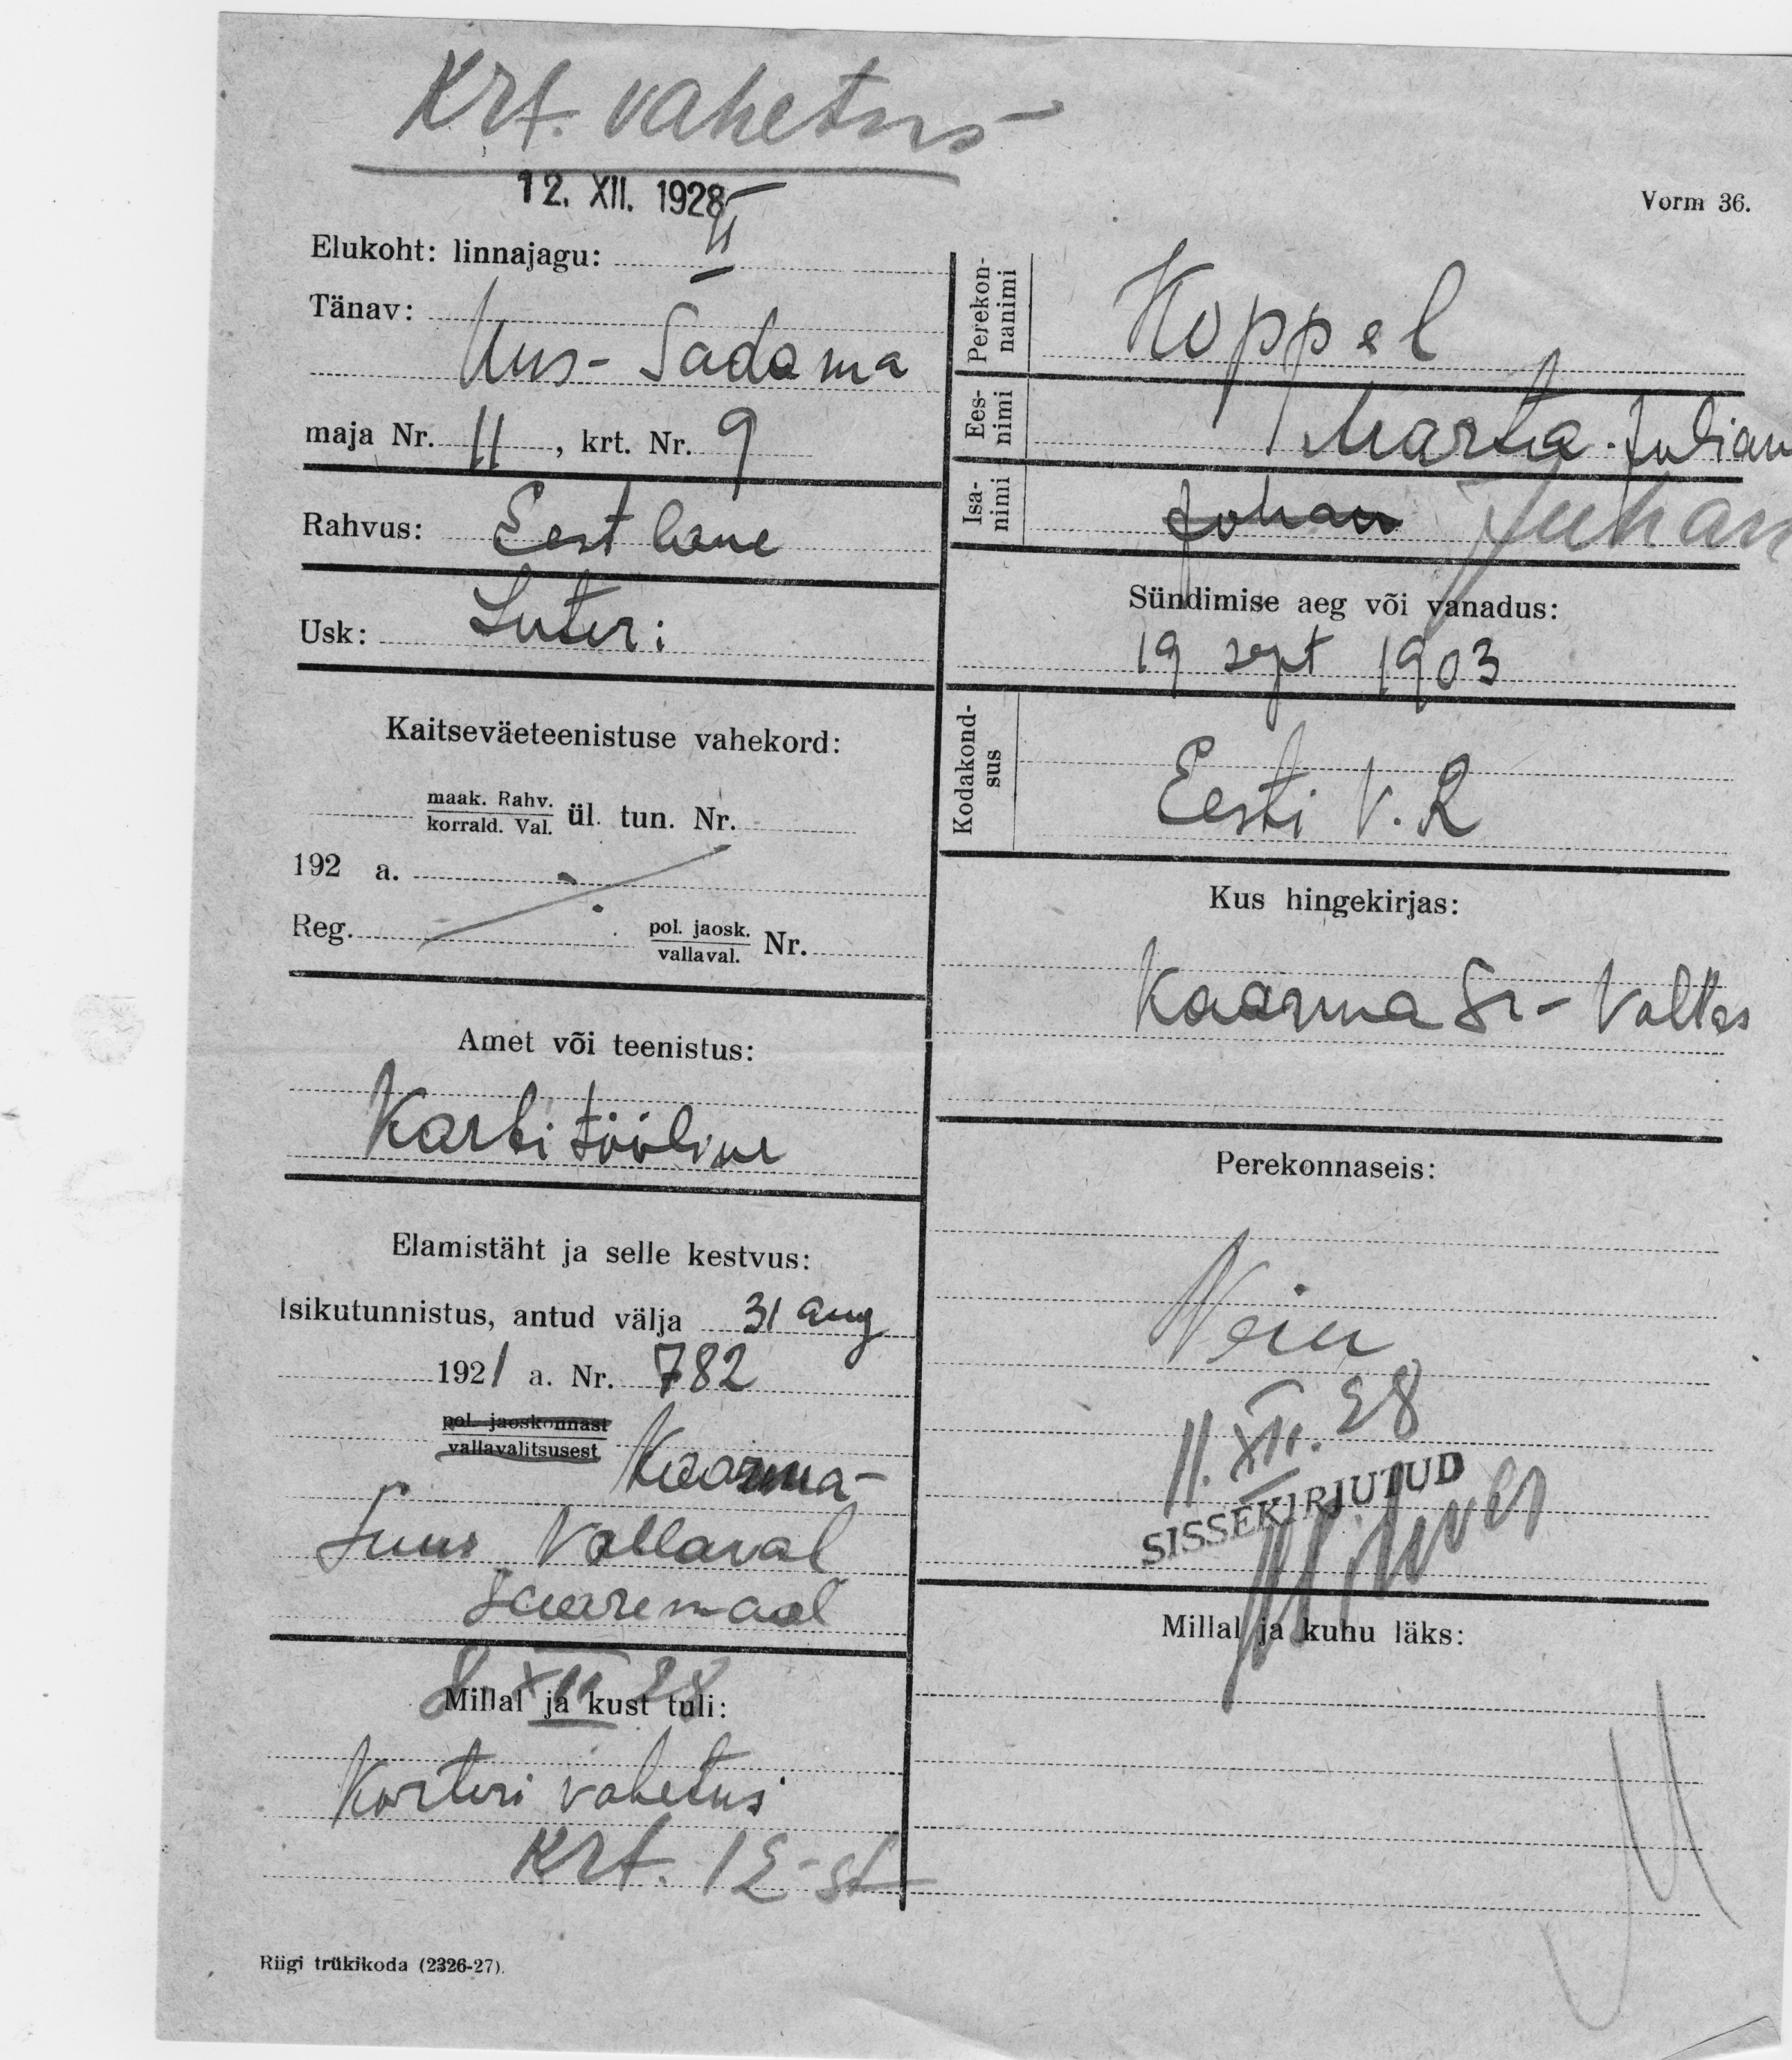 Krt. vahetus
12. XII. 1928
Vorm 36.
Elukoht: linnajagu: II
Tänav:
Uus-Sadama
maja Nr. 11, krt. Nr. 9
Rahvus: Eestlane
Usk: Luteri
Kaitseväeteenistuse vahekord:
maak. Rahv.
korrald. Val. ül. tun. Nr.
192 a.
Reg. pol. jaosk.
vallaval. Nr.
Amet või teenistus:
Karbitööline
Elamistäht ja selle kestvus:
Isikutunnistus, antud välja 31 aug
1921 a. Nr. 782
pol. jaoskonnast
vallavalitsusest Kaarma-
Suur Vallaval
Saaremaal
8 XII 28
Millal ja kust tuli:
Korteri vahetus
Krt. 12-st
Perekon-
nanimi Koppel
Ees-
nimi Marta-Julian
Isa-
nimi Johan Juhan
Sündimise aeg või vanadus:
19 sept 1903
Kodakond-
sus Eesti V. R
Kus hingekirjas:
Kaarma Sr-Vallas
Perekonnaseis:
Neiu
11. XII. 28
SISSEKIRJUTUD
Millal ja kuhu läks:
Riigi trükikoda (2326-27).